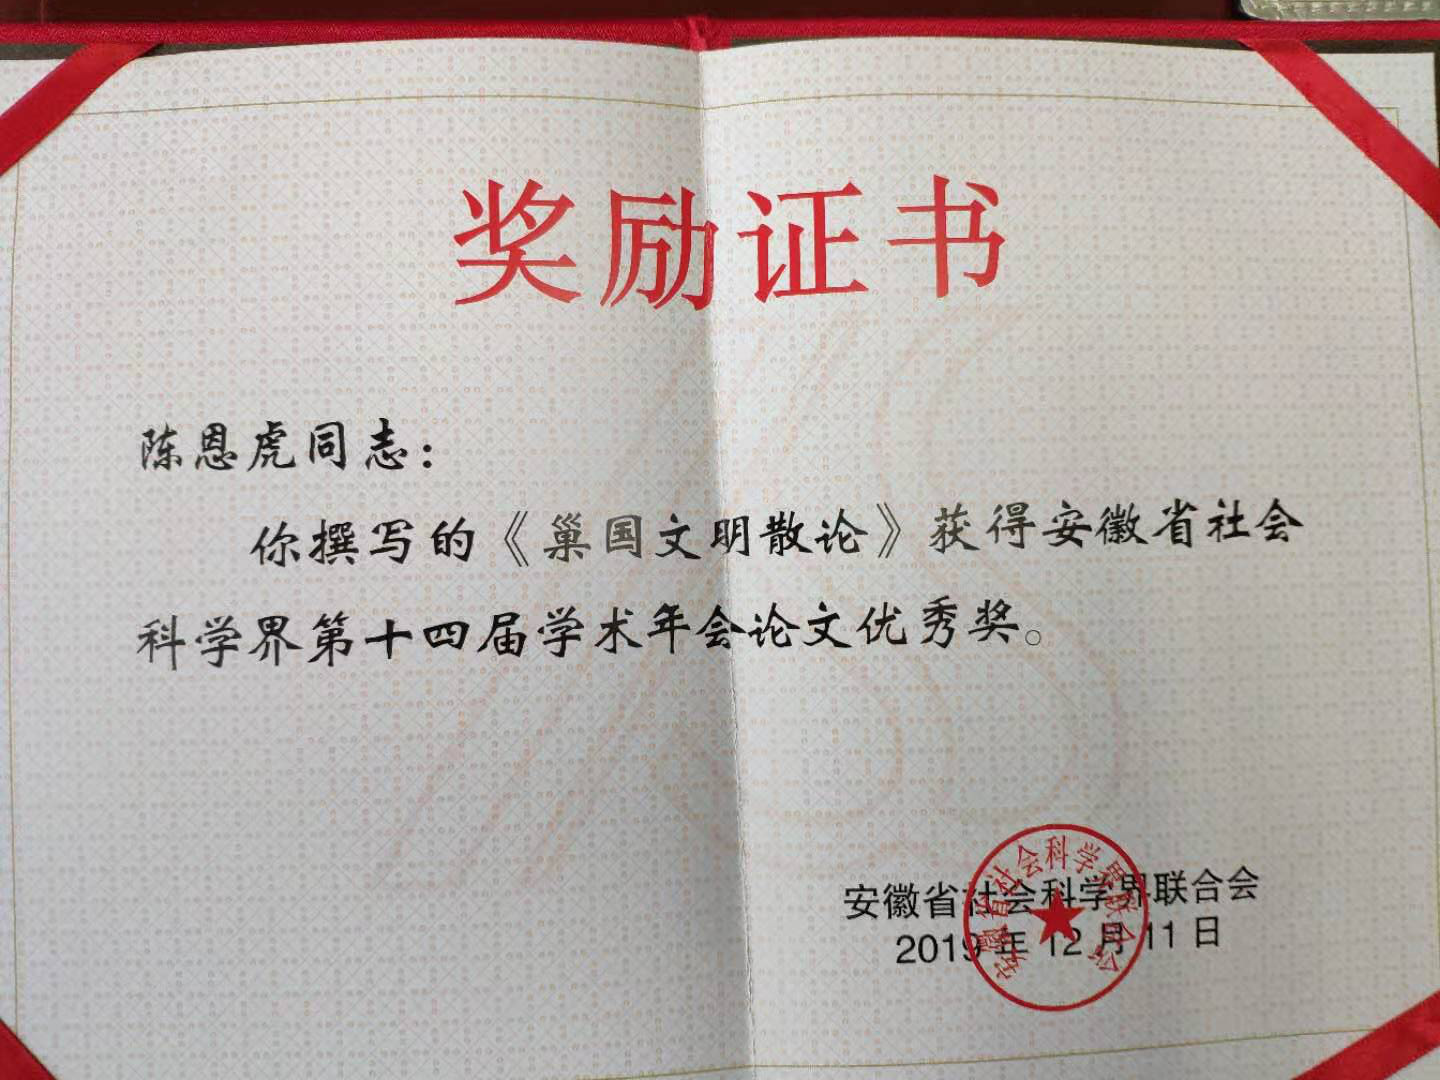 奖励证书
陈恩虎同志：
你撰写的《巢国文明散论》获得安徽省社会
科学界第十四届学术年会论文优秀奖。
安徽省社会科学界联合会
2019年12月11日
安徽省社会科学界联合会